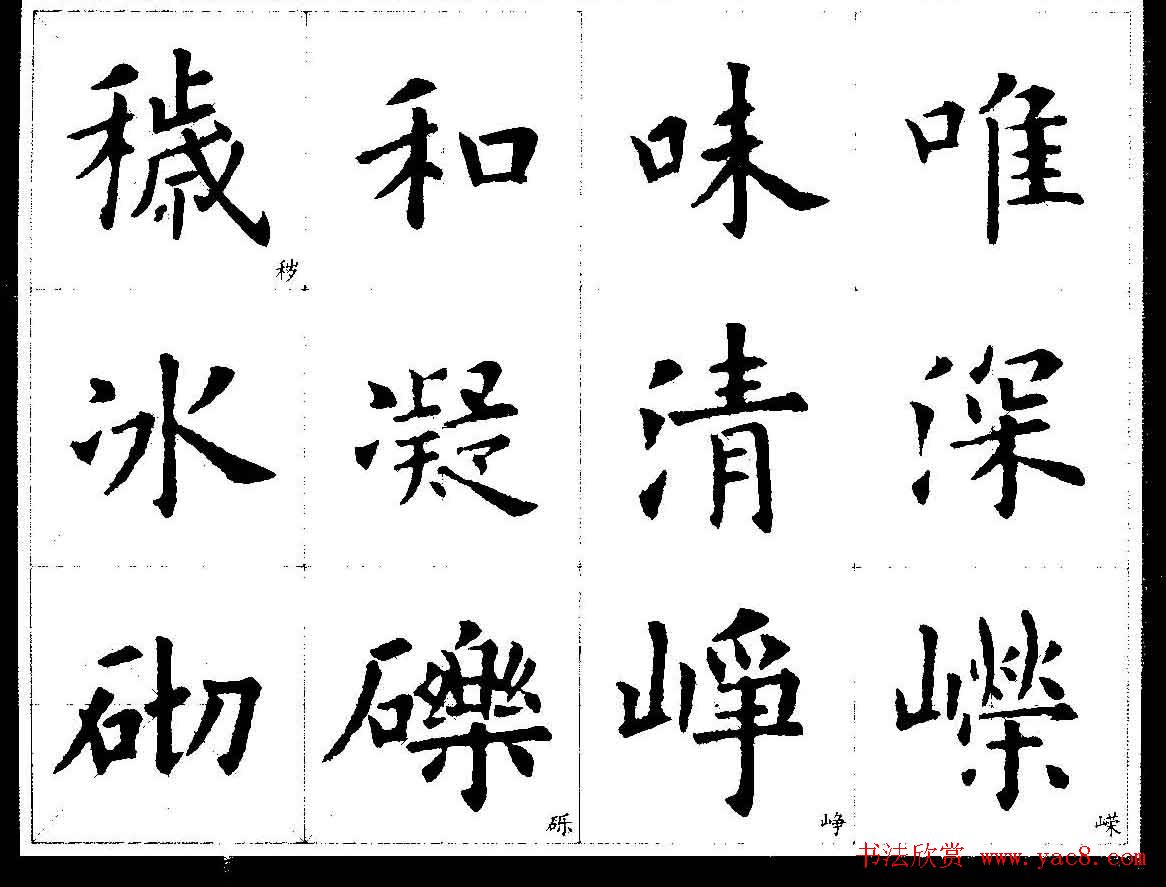 穢 和 味 唯
秽
冰 凝 清 深
砌 礫 崢 嶸
砾 峥 嵘
书法欣赏 www.yac8.com